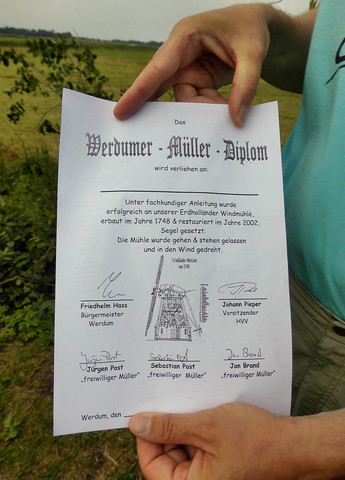 Das
Werdumer - Müller - Diplom
wird verliehen an:
Unter fachkundiger Anleitung wurde
erfolgreich an unserer Erdholländer Windmühle,
erbaut im Jahre 1748 & restauriert im Jahre 2002,
Segel gesetzt.
Die Mühle wurde gehen & stehen gelassen
und in den Wind gedreht.
Friedhelm Hass
Bürgermeister
Werdum
Johann Pieper
Vorsitzender
HVV
Jürgen Post Sebastian Post Jan Brand
Jürgen Post Sebastian Post Jan Brand
„freiwilliger Müller" „freiwilliger Müller" „freiwilliger Müller"
Werdum, den